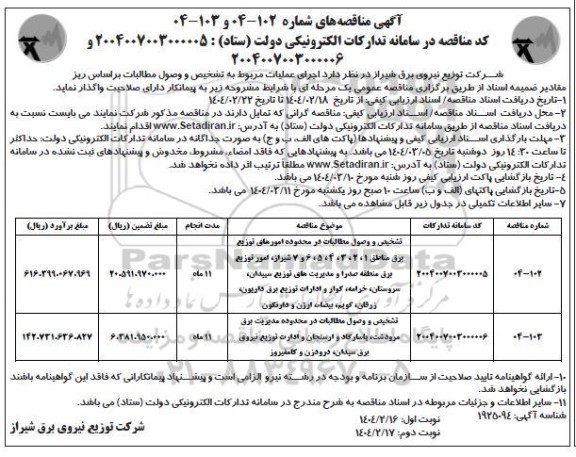 آگهی مناقصه‌های شماره ۱۰۲-۰۴ و ۱۰۳-۰۴
کد مناقصه در سامانه تدارکات الکترونیکی دولت (ستاد) : ۲۰۰۴۰۰۷۰۰۳۰۰۰۰۰۵ و
۲۰۰۴۰۰۷۰۰۳۰۰۰۰۰۶
شــرکت توزیع نیروی برق شیراز در نظر دارد اجرای عملیات مربوط به تشخیص و وصول مطالبات براساس ریز
مقادیر ضمیمه اسناد از طریق برگزاری مناقصه عمومی یک مرحله ای با شرایط مشروحه زیر به پیمانکار دارای صلاحیت واگذار نماید.
۱-تاریخ دریافت اسناد مناقصه/ اسناد ارزیابی کیفی: از تاریخ ۱۴۰۴/۰۲/۱۸ تا تاریخ ۱۴۰۴/۰۲/۲۲
۲- محل دریافت اسـناد مناقصه/ اسـناد ارزیابی کیفی: مناقصه گرانی که تمایل دارند در مناقصه مذکور شرکت نمایند می بایست نسبت به
دریافت اسناد مناقصه از طریق سامانه تدارکات الکترونیکی دولت (ستاد) به آدرس: www.Setadiran.ir اقدام نمایند.
۳-مهلت بارگذاری اسـناد ارزیابی کیفی و پیشنهادها (پاکت های الف، ب و ج) به صورت جداگانه در سامانه تدارکات الکترونیکی دولت: حداکثر
تا ساعت ۱۴:۳۰ روز دوشنبه تاریخ ۱۴۰۴/۰۳/۰۵ می باشد. به پیشنهادهایی که فاقد امضاء، مشروط، مخدوش و پیشنهادهای ثبت نشده در سامانه
تدارکات الکترونیکی دولت (ستاد) به آدرس: www.Setadiran.ir مطلقا ترتیب اثر داده نخواهد شد.
۴- تاریخ بازگشایی پاکت ارزیابی کیفی روز شنبه مورخ ۱۴۰۴/۰۳/۱۰ می باشد.
۵-تاریخ بازگشایی پاکتهای (الف و ب) ساعت ۱۰ صبح روز یکشنبه مورخ ۱۴۰۴/۰۳/۱۱ می باشد.
۷- سایر اطلاعات تکمیلی در جدول زیر قابل مشاهده می باشد.
شماره مناقصه کد سامانه تدارکات موضوع مناقصه مدت انجام مبلغ تضمین (ریال) مبلغ برآورد (ریال)
۱۰۲-۰۴ ۲۰۰۴۰۰۷۰۰۳۰۰۰۰۰۵ تشخیص و وصول مطالبات در محدوده امورهای توزیع
برق مناطق ۱، ۲، ۳، ۴، ۵، ۶ و ۷ شیراز، امور توزیع
برق منطقه صدرا و مدیریت های توزیع سپیدان،
سروستان، خرامه، کوار و ادارات توزیع برق داریون،
زرقان، کوپم، بیضا، ارژن و دارنگون ۱۱ ماه ۲۰.۵۹۱.۹۷۰.۰۰۰ ۶۱۶.۳۹۹.۰۶۷.۹۶۹
۱۰۳-۰۴ ۲۰۰۴۰۰۷۰۰۳۰۰۰۰۰۶ تشخیص و وصول مطالبات در محدوده مدیریت برق
مرودشت، پاسارگاد و ارسنجان و ادارت توزیع نیروی
برق سیدان، درودزن و کامفیروز ۱۱ ماه ۶.۳۸۱.۹۵۰.۰۰۰ ۱۴۲.۷۳۱.۶۳۶.۸۲۷
۱۰- ارائه گواهینامه تایید صلاحیت از سـازمان برنامه و بودجه در رشـته نیرو الزامی است و پیشـنهاد پیمانکارانی که فاقد این گواهینامه باشند
بازگشایی نخواهد شد.
۱۱- سایر اطلاعات و جزئیات مربوطه در اسناد مناقصه به شرح مندرج در سامانه تدارکات الکترونیکی دولت (ستاد) می باشد.
شناسه آگهی: ۱۹۲۵۰۹۴
نوبت اول: ۱۴۰۴/۲/۱۶
نوبت دوم: ۱۴۰۴/۲/۱۷
شرکت توزیع نیروی برق شیراز